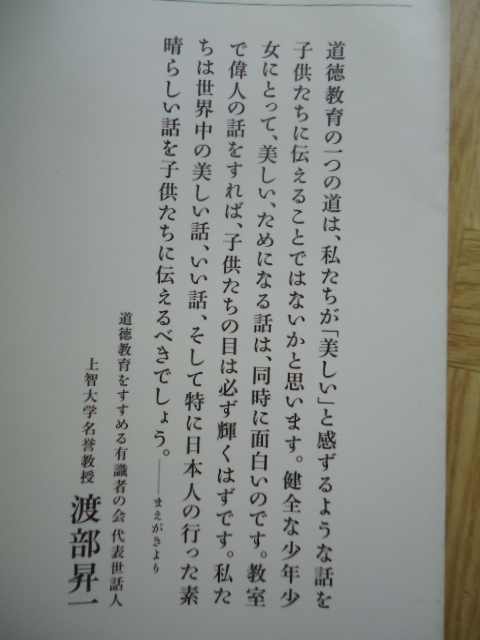 道徳教育の一つの道は、私たちが「美しい」と感ずるような話を
子供たちに伝えることではないかと思います。健全な少年少
女にとって、美しい、ためになる話は、同時に面白いのです。教室
で偉人の話をすれば、子供たちの目は必ず輝くはずです。私た
ちは世界中の美しい話、いい話、そして特に日本人の行った素
晴らしい話を子供たちに伝えるべきでしょう。――まえがきより
道徳教育をすすめる有識者の会 代表世話人
上智大学名誉教授 渡部昇一